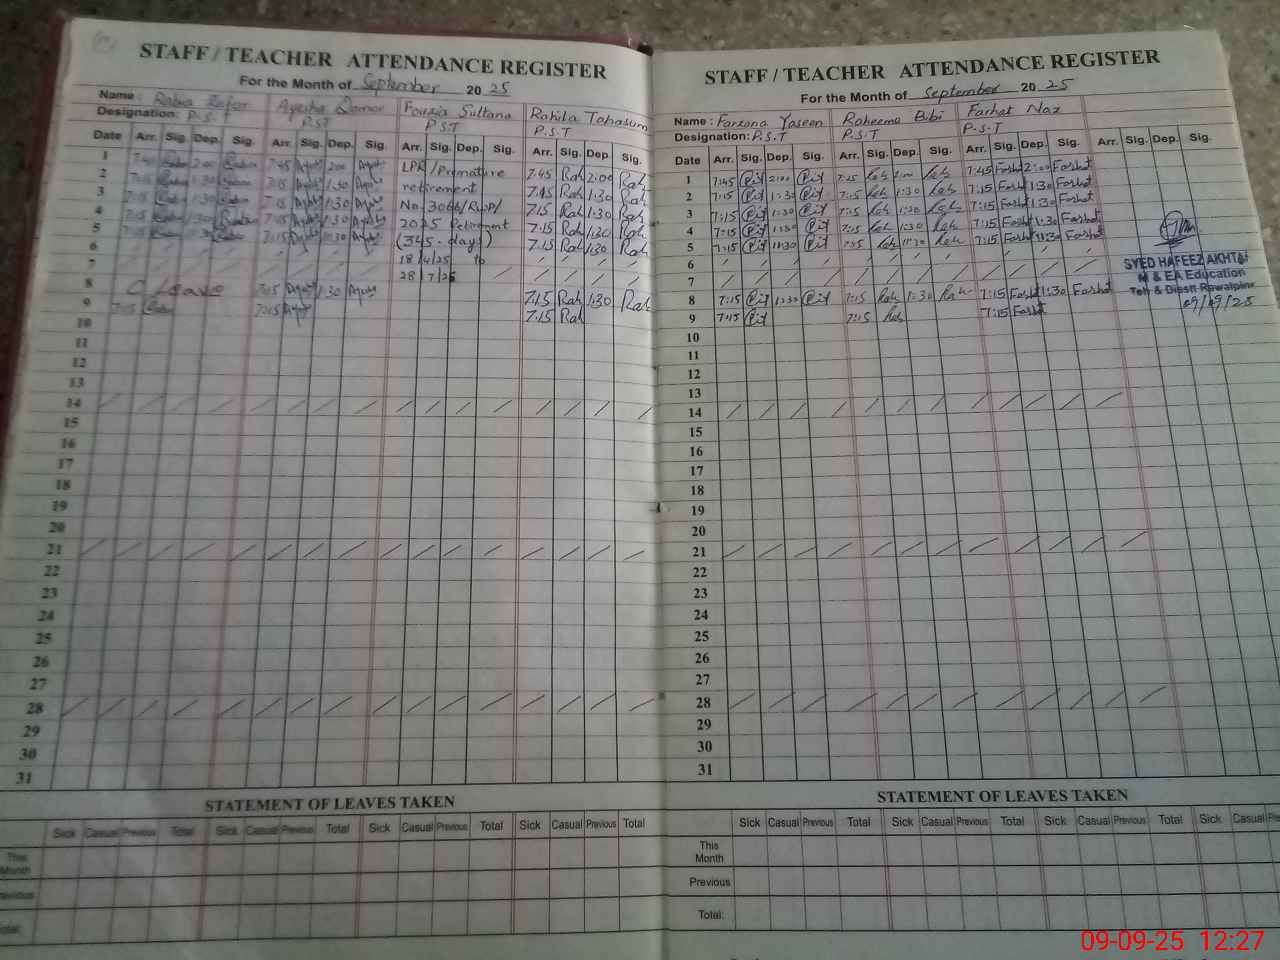 STAFF / TEACHER ATTENDANCE REGISTER
For the Month of September 20 25
Name : Rabia Zafar Ayesha Qamar Fouzia Sultana Rahila Tabasum
Designation: P.S.T P.S.T P.S.T P.S.T
Date Arr. Sig. Dep. Sig. Arr. Sig. Dep. Sig. Arr. Sig. Dep. Sig. Arr. Sig. Dep. Sig.
1 7:45 2:00 7:45 2:00 LPR/Premature 7:45 Rah 2:00 Rah
2 7:15 1:30 7:15 1:30 retirement 7:15 Rah 1:30 Rah
3 7:15 1:30 7:15 1:30 No. 7:15 Rah 1:30 Rah
4 7:15 1:30 7:15 1:30 2025 Retirement 7:15 Rah 1:30 Rah
5 7:15 11:30 7:15 11:30 (345-days) 7:15 Rah 11:30 Rah
6 18/4/25 to
7 28/7/25
8 C Leave 7:15 1:30 7:15 Rah 1:30 Rah
9 7:15 7:15 7:15 Rah
10
11
12
13
14
15
16
17
18
19
20
21
22
23
24
25
26
27
28
29
30
31
STATEMENT OF LEAVES TAKEN
Sick Casual Previous Total Sick Casual Previous Total Sick Casual Previous Total Sick Casual Previous Total
This Month
Previous
Total:
STAFF / TEACHER ATTENDANCE REGISTER
For the Month of September 20 25
Name : Farzana Yaseen Raheema Bibi Farhat Naz
Designation: P.S.T P.S.T P.S.T
Date Arr. Sig. Dep. Sig. Arr. Sig. Dep. Sig. Arr. Sig. Dep. Sig. Arr. Sig. Dep. Sig.
1 7:45 2:00 Rah Rah 7:45 Farhat 2:00 Farhat
2 7:15 1:30 7:15 Rah 1:30 Rah 7:15 Farhat 1:30 Farhat
3 7:15 1:30 7:15 Rah 1:30 Rah 7:15 Farhat 1:30 Farhat
4 7:15 1:30 7:15 Rah 1:30 Rah 7:15 Farhat 1:30 Farhat
5 7:15 11:30 7:15 Rah 11:30 Rah 7:15 Farhat 11:30 Farhat
6
7
8 7:15 1:30 7:15 Rah 1:30 Rah 7:15 Farhat 1:30 Farhat
9 7:15 7:15 Rah 7:15 Farhat
10
11
12
13
14
15
16
17
18
19
20
21
22
23
24
25
26
27
28
29
30
31
SYED HAFEEZ AKHTAR
M & EA Education
Teh & Distt Rawalpindi
09/09/25
STATEMENT OF LEAVES TAKEN
Sick Casual Previous Total Sick Casual Previous Total Sick Casual Previous Total Sick Casual
This Month
Previous
Total:
09-09-25 12:27